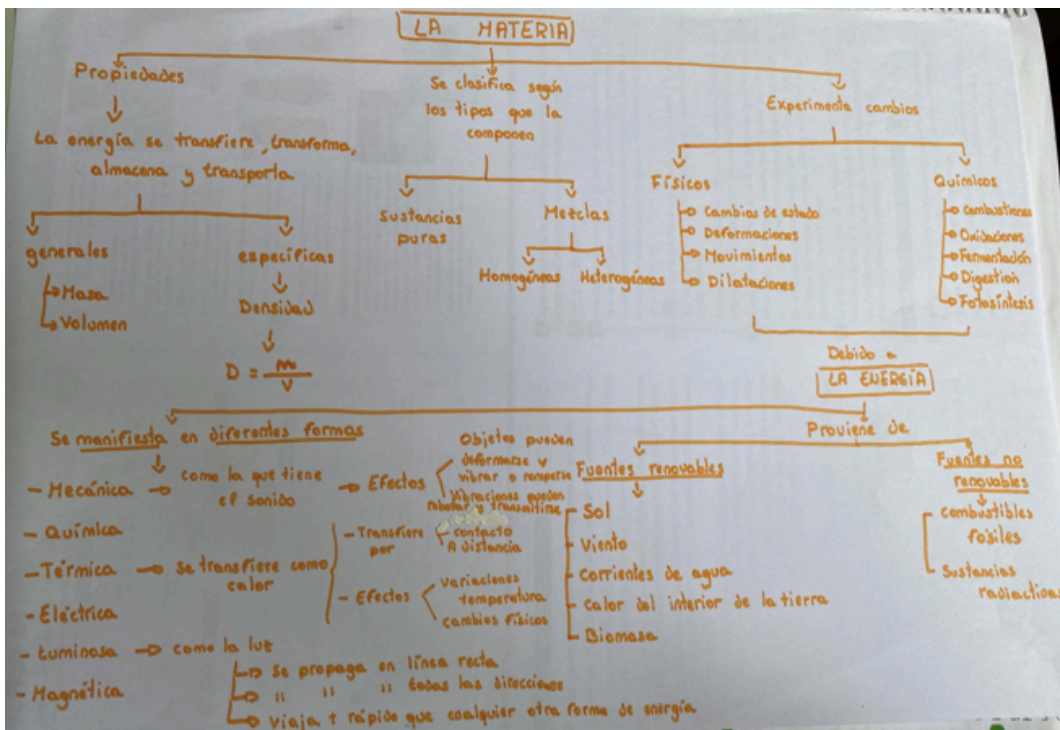 LA MATERIA
Propiedades
La energía se transfiere, transforma,
almacena y transporta
generales
Masa
Volumen
específicas
Densidad
D = m/V
Se clasifica según
los tipos que la
componen
Sustancias
puras
Mezclas
Homogéneas
Heterogéneas
Experimenta cambios
Físicos
Cambios de estado
Deformaciones
Movimientos
Dilataciones
Químicos
Combustiones
Oxidaciones
Fermentación
Digestión
Fotosíntesis
Debido a
LA ENERGÍA
Se manifiesta en diferentes formas
- Mecánica
como la que tiene
el sonido
Efectos
Objetos pueden
deformarse y
vibrar o romperse
Vibraciones pueden
rebotar y transmitirse
- Química
- Térmica
Se transfiere como
calor
- Transfiere
por
contacto
A distancia
- Efectos
Variaciones
temperatura
cambios físicos
- Eléctrica
- Luminosa
como la luz
Se propaga en línea recta
" " " todas las direcciones
Viaja + rápido que cualquier otra forma de energía
- Magnética
Proviene de
Fuentes renovables
Sol
Viento
Corrientes de agua
Calor del interior de la tierra
Biomasa
Fuentes no
renovables
Combustibles
fósiles
Sustancias
radiactivas